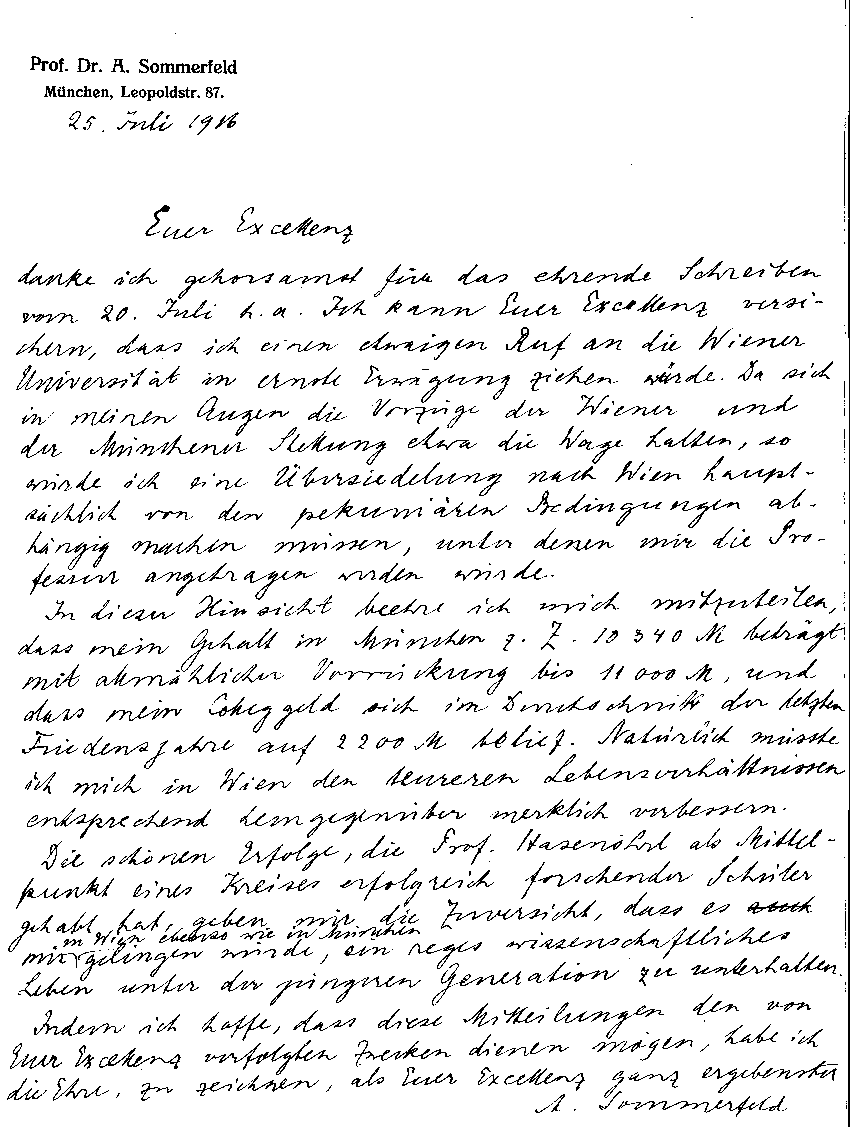 Prof. Dr. A. Sommerfeld
München, Leopoldstr. 87.
25. Juli 1916
Euer Excellenz
danke ich gehorsamst für das ehrende Schreiben
vom 20. Juli h. a. Ich kann Euer Excellenz versi-
chern, dass ich einen etwaigen Ruf an die Wiener
Universität in ernste Erwägung ziehen würde. Da sich
in meinen Augen die Vorzüge der Wiener und
der Münchener Stellung etwa die Wage halten, so
würde ich eine Übersiedelung nach Wien haupt-
sächlich von den pekuniären Bedingungen ab-
hängig machen müssen, unter denen mir die Pro-
fessur angetragen werden würde.
In dieser Hinsicht beehre ich mich mitzuteilen,
dass mein Gehalt in München z. Z. 10 340 M beträgt
mit allmählicher Vorrückung bis 11 000 M, und
dass mein Colleggeld sich im Durchschnitt der letzten
Friedensjahre auf 2200 M belief. Natürlich müsste
ich mich in Wien den teureren Lebensverhältnissen
entsprechend demgegenüber merklich verbessern.
Die schönen Erfolge, die Prof. Hasenöhrl als Mittel-
punkt eines Kreises erfolgreich forschender Schüler
gehabt hat, geben mir die Zuversicht, dass es auch
in Wien ebenso wie in München
mir gelingen würde, ein reges wissenschaftliches
Leben unter der jüngeren Generation zu unterhalten.
Indem ich hoffe, dass diese Mitteilungen den von
Euer Excellenz verfolgten Zwecken dienen mögen, habe ich
die Ehre, zu zeichnen, als Euer Excellenz ganz ergebenster
A. Sommerfeld